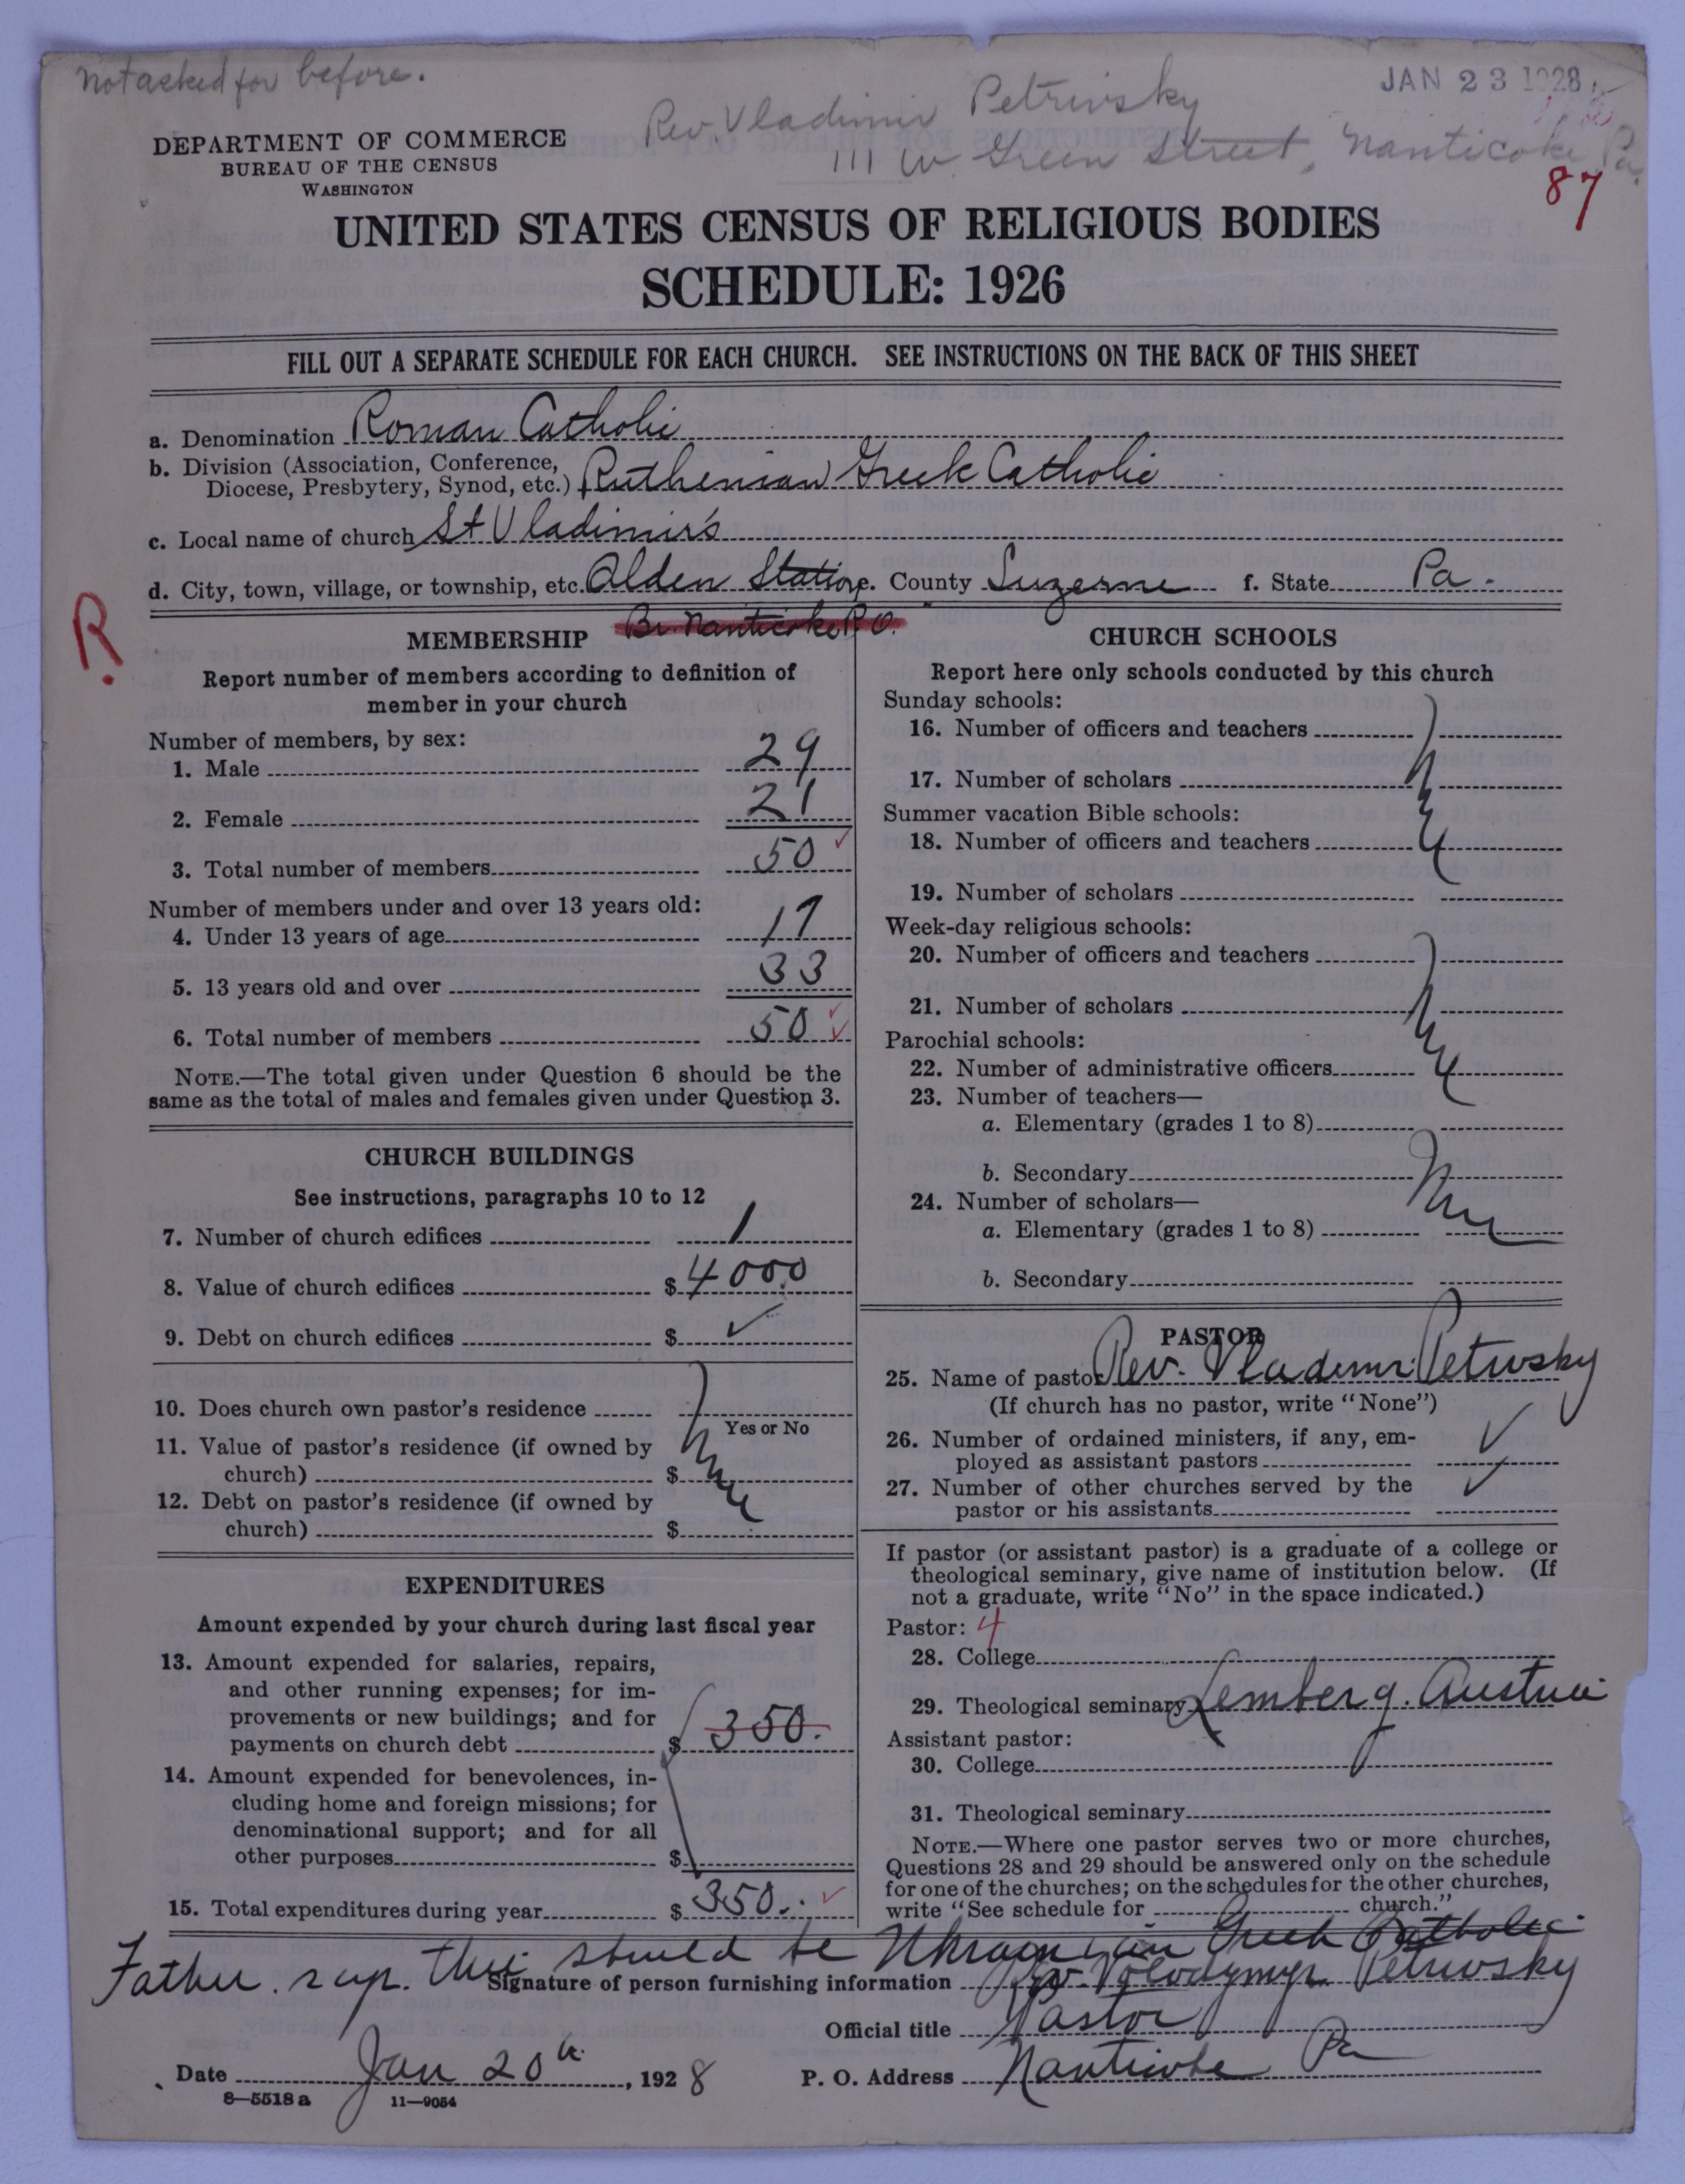 Not asked for before.
JAN 23 1928
Rev. Vladimir Petrivsky
111 W Green Street, Nanticoke Pa.
87
DEPARTMENT OF COMMERCE
BUREAU OF THE CENSUS
WASHINGTON
UNITED STATES CENSUS OF RELIGIOUS BODIES
SCHEDULE: 1926
FILL OUT A SEPARATE SCHEDULE FOR EACH CHURCH. SEE INSTRUCTIONS ON THE BACK OF THIS SHEET
a. Denomination Roman Catholic
b. Division (Association, Conference,
Diocese, Presbytery, Synod, etc.) Ruthenian Greek Catholic
c. Local name of church St Vladimir's
d. City, town, village, or township, etc. Alden Station e. County Luzerne f. State Pa.
Br. Nanticoke P.O.
R.
MEMBERSHIP
Report number of members according to definition of
member in your church
Number of members, by sex:
1. Male 29
2. Female 21
3. Total number of members 50
Number of members under and over 13 years old:
4. Under 13 years of age 17
5. 13 years old and over 33
6. Total number of members 50
NOTE.—The total given under Question 6 should be the
same as the total of males and females given under Question 3.
CHURCH BUILDINGS
See instructions, paragraphs 10 to 12
7. Number of church edifices 1
8. Value of church edifices $ 4000
9. Debt on church edifices $ ✓
10. Does church own pastor's residence
Yes or No
11. Value of pastor's residence (if owned by
church) $
12. Debt on pastor's residence (if owned by
church) $
EXPENDITURES
Amount expended by your church during last fiscal year
13. Amount expended for salaries, repairs,
and other running expenses; for im-
provements or new buildings; and for
payments on church debt $ 350.
14. Amount expended for benevolences, in-
cluding home and foreign missions; for
denominational support; and for all
other purposes $
15. Total expenditures during year $ 350.
CHURCH SCHOOLS
Report here only schools conducted by this church
Sunday schools:
16. Number of officers and teachers
17. Number of scholars
Summer vacation Bible schools:
18. Number of officers and teachers
19. Number of scholars
Week-day religious schools:
20. Number of officers and teachers
21. Number of scholars
Parochial schools:
22. Number of administrative officers
23. Number of teachers—
a. Elementary (grades 1 to 8)
b. Secondary
24. Number of scholars—
a. Elementary (grades 1 to 8)
b. Secondary
PASTOR
25. Name of pastor Rev. Vladimir Petrivsky
(If church has no pastor, write "None")
26. Number of ordained ministers, if any, em-
ployed as assistant pastors ✓
27. Number of other churches served by the
pastor or his assistants ✓
If pastor (or assistant pastor) is a graduate of a college or
theological seminary, give name of institution below. (If
not a graduate, write "No" in the space indicated.)
Pastor: 4
28. College
29. Theological seminary Lemberg. Austria
Assistant pastor:
30. College
31. Theological seminary
NOTE.—Where one pastor serves two or more churches,
Questions 28 and 29 should be answered only on the schedule
for one of the churches; on the schedules for the other churches,
write "See schedule for church."
Father says this should be Ukrainian Greek Catholic
Signature of person furnishing information Rev. Volodymyr Petrivsky
Official title Pastor
Date Jan 20th, 1928 P. O. Address Nanticoke Pa
8—5518 a 11—9054